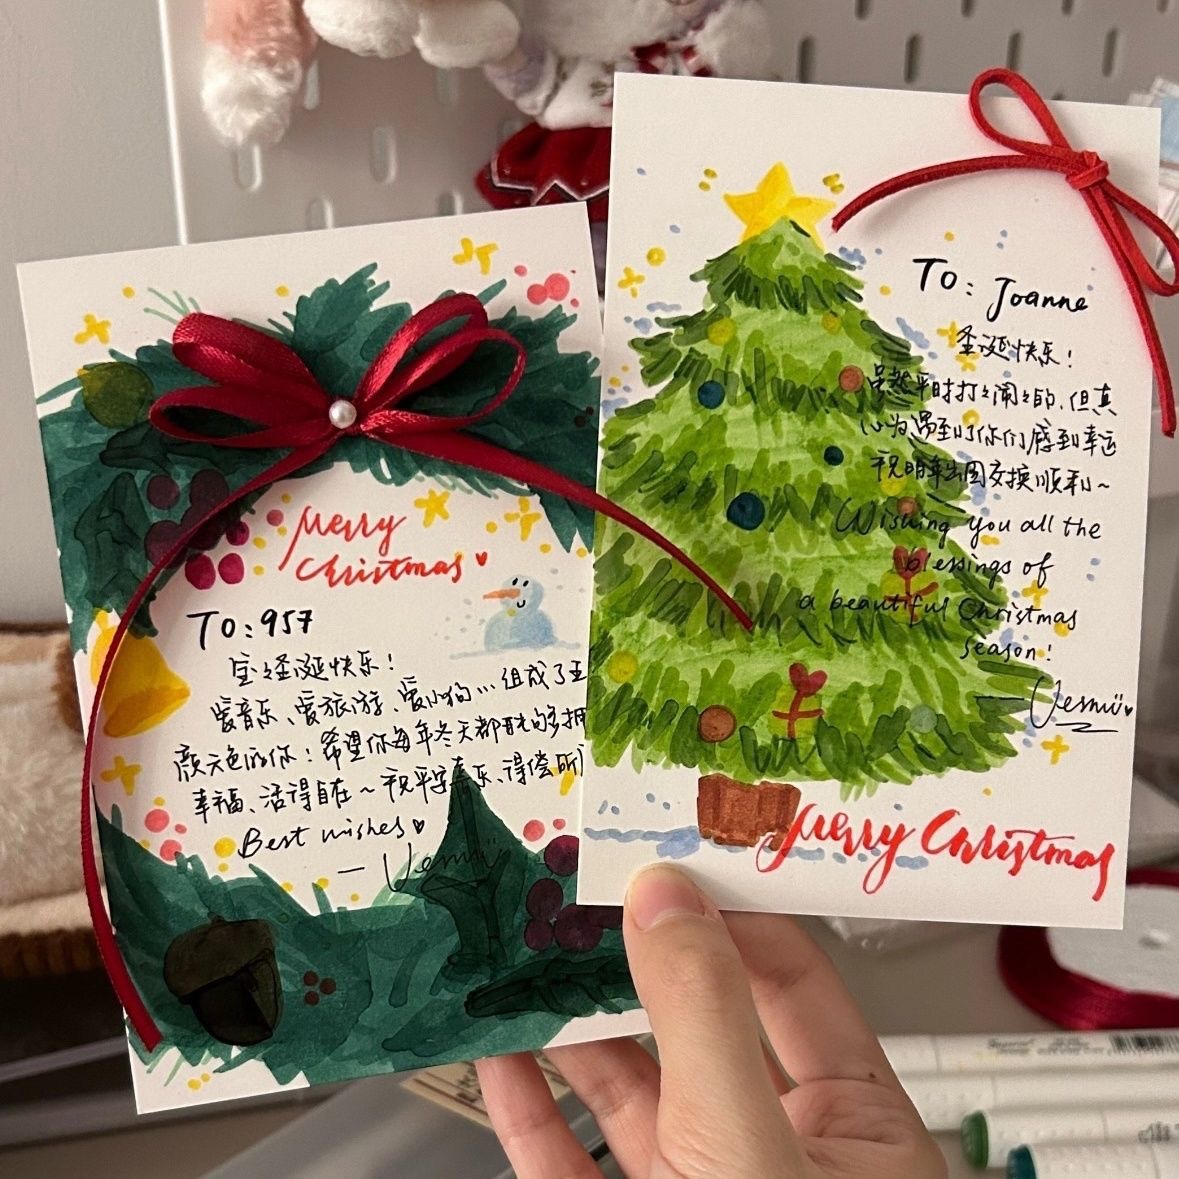 Merry
Christmas
TO: 957
宝宝圣诞快乐!
爱音乐、爱旅游、爱小狗… 组成了五
颜六色的你! 希望你每年冬天都能够拥
幸福、活得自在~祝平安喜乐、得偿所
Best wishes
TO: Joanne
圣诞快乐!
虽然平时打打闹闹的,但真
心为遇到你们感到幸运
祝明年出国交换顺利~
Wishing you all the
blessings of
a beautiful Christmas
season!
Merry Christmas